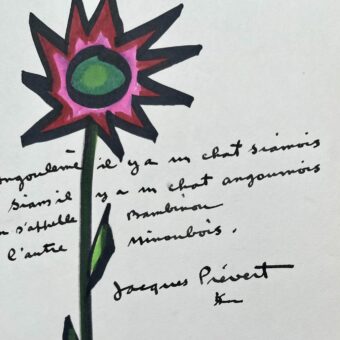 ngoulème il y a un chat siamois
siam il y a un chat angoumois
n s'appelle Bambinou
l'autre Minoubois.
Jacques Prévert